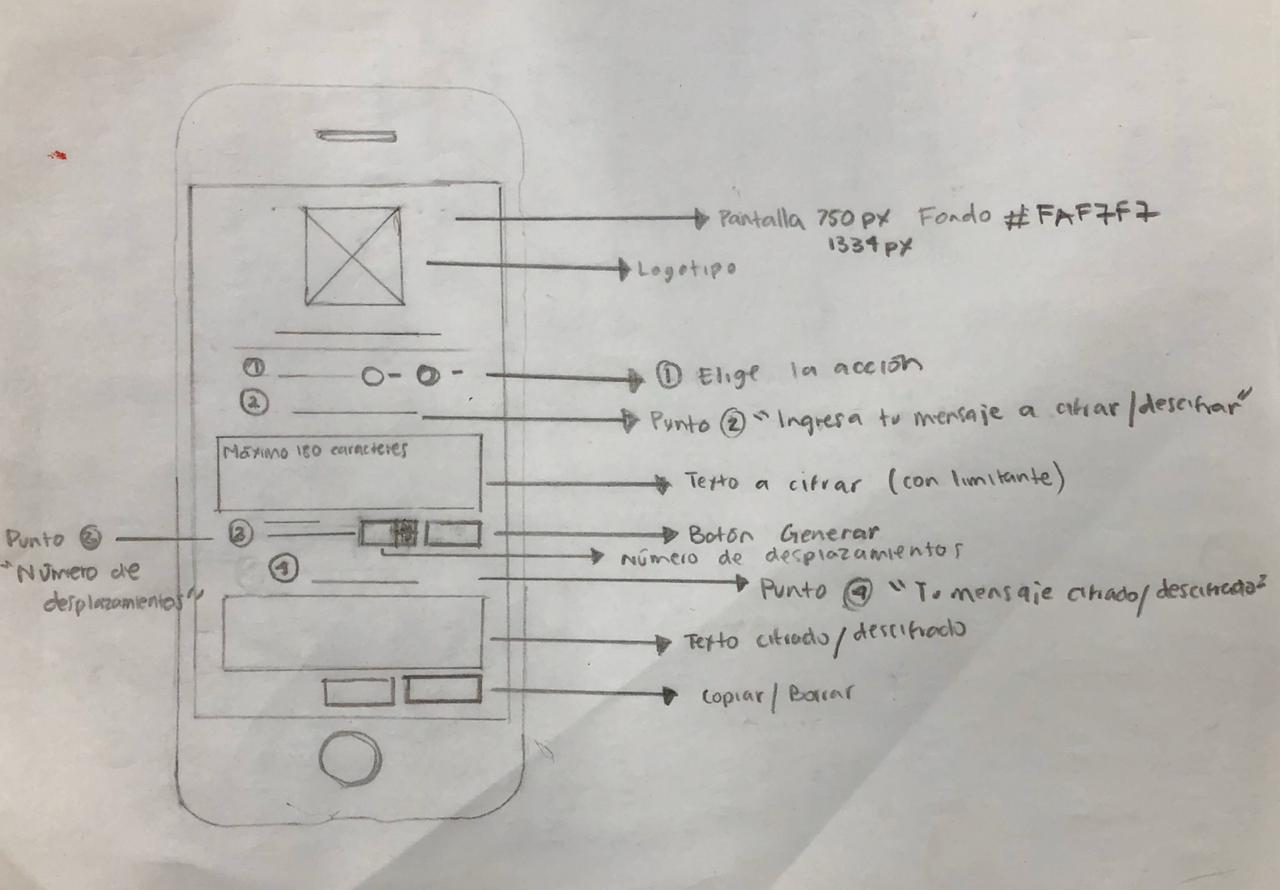 Pantalla 750 px Fondo #FAF7F7
1334 px
Logotipo
① ① Elige la acción
② Punto ② "Ingresa tu mensaje a cifrar/descifrar"
Máximo 180 caracteres
Texto a cifrar (con limitante)
③ Botón Generar
Punto ③
"Número de
desplazamientos"
Número de desplazamientos
④ Punto ④ "Tu mensaje cifrado/descifrado"
Texto cifrado/descifrado
Copiar/Borrar